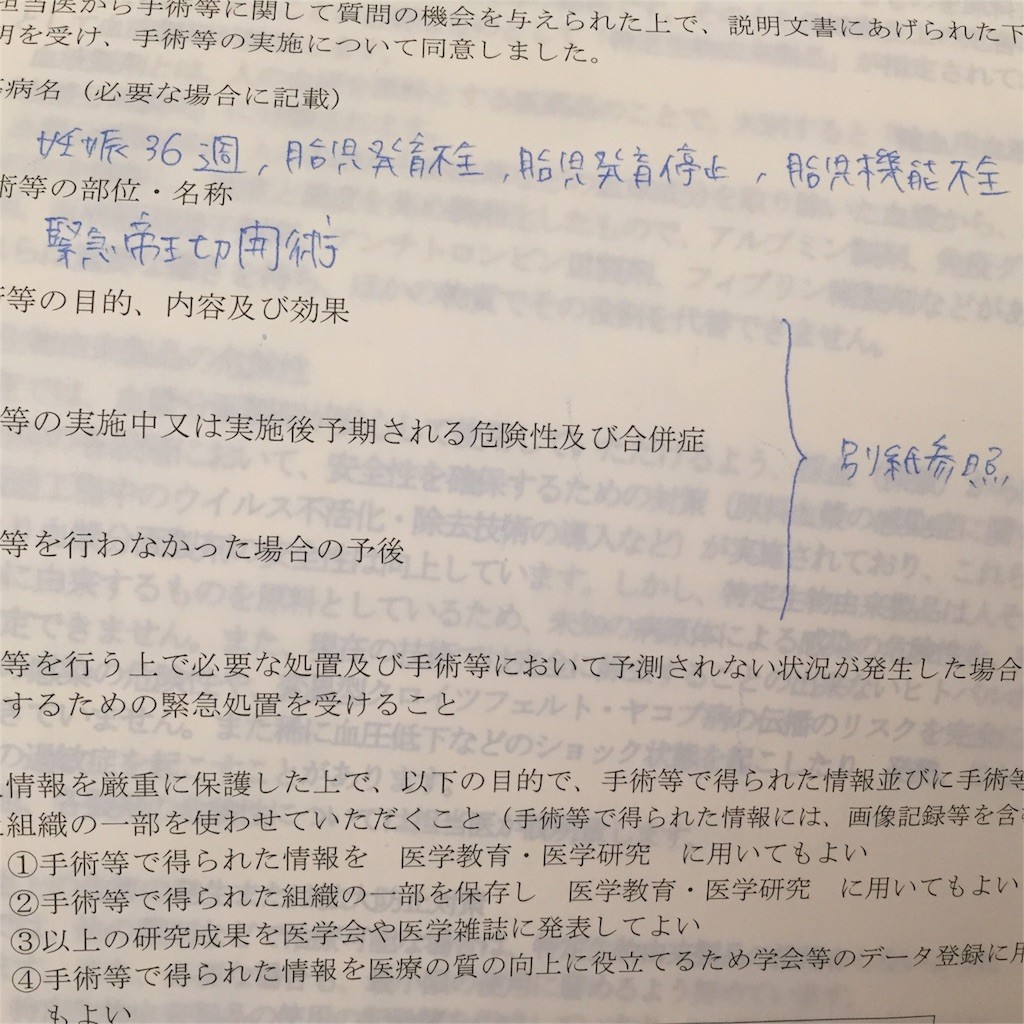 担当医から手術等に関して質問の機会を与えられた上で、説明文書にあげられた下
明を受け、手術等の実施について同意しました。
病名（必要な場合に記載）
妊娠36週，胎児発育不全，胎児発育停止，胎児機能不全
術等の部位・名称
緊急帝王切開術
等の目的、内容及び効果
等の実施中又は実施後予期される危険性及び合併症
別紙参照
等を行わなかった場合の予後
等を行う上で必要な処置及び手術等において予測されない状況が発生した場合
するための緊急処置を受けること
情報を厳重に保護した上で、以下の目的で、手術等で得られた情報並びに手術等
組織の一部を使わせていただくこと（手術等で得られた情報には、画像記録等を含
①手術等で得られた情報を　医学教育・医学研究　に用いてもよい
②手術等で得られた組織の一部を保存し　医学教育・医学研究　に用いてもよい
③以上の研究成果を医学会や医学雑誌に発表してよい
④手術等で得られた情報を医療の質の向上に役立てるため学会等のデータ登録に用
もよい